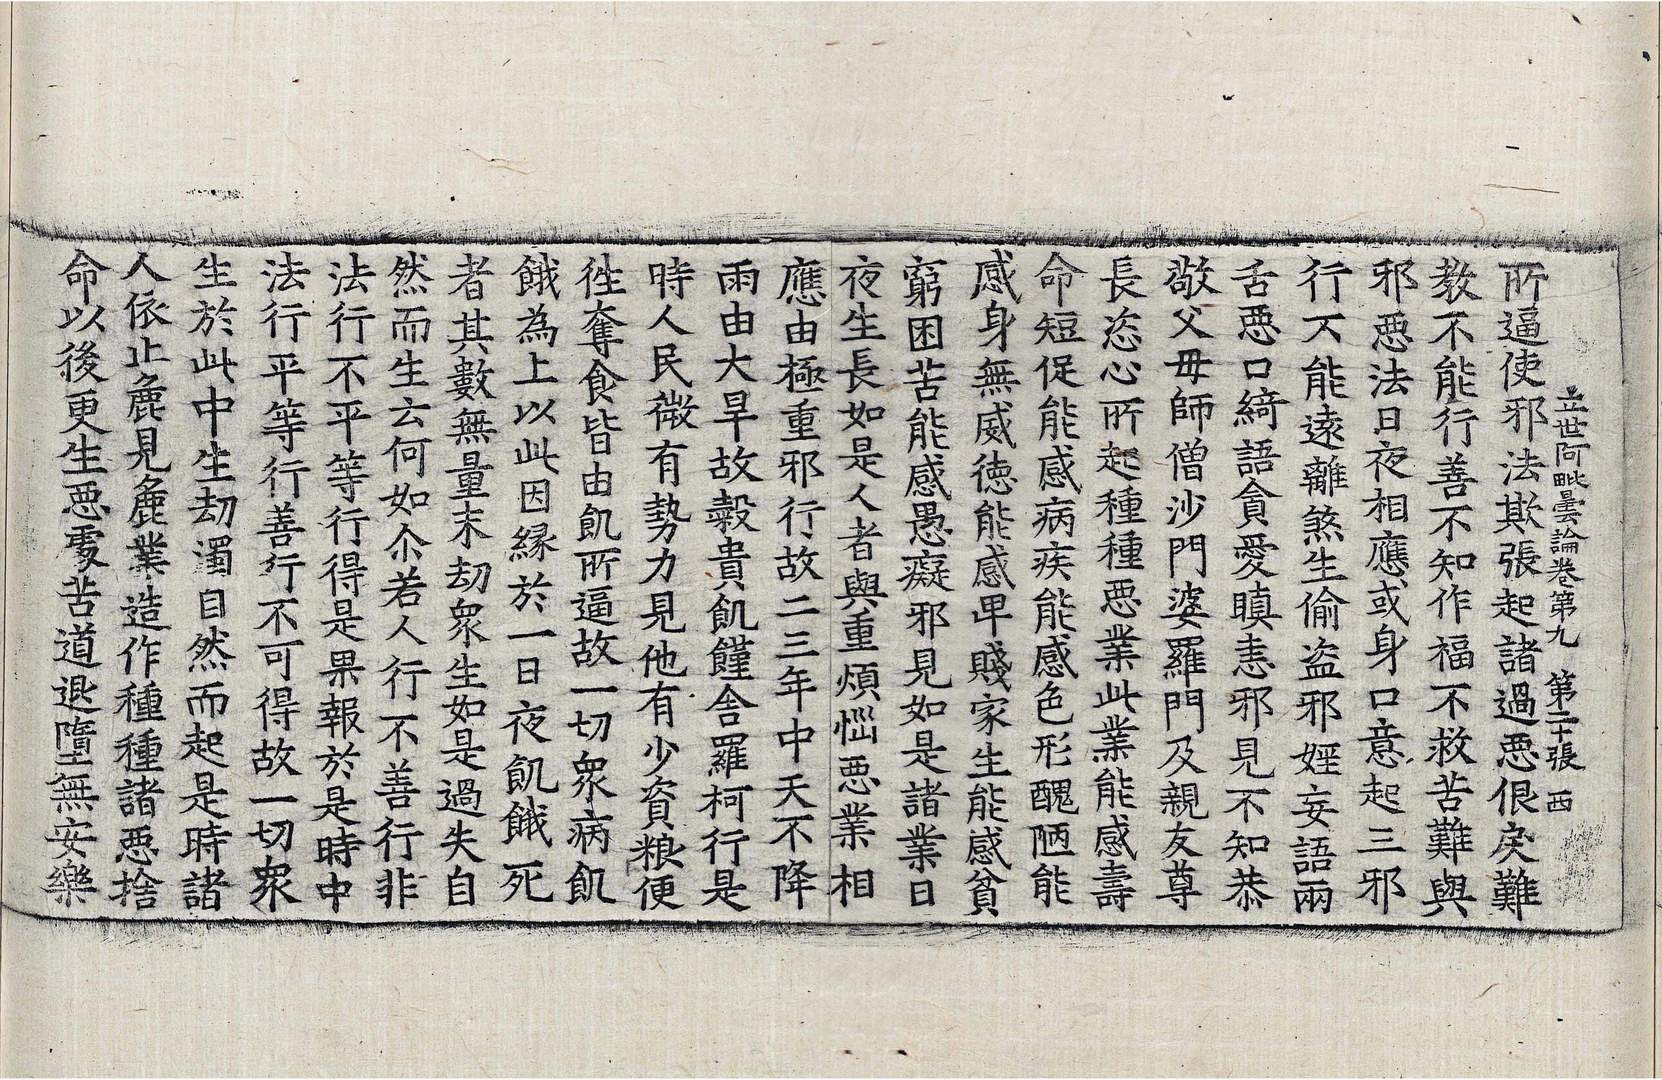 立世阿毗曇論卷第九　第二十張　西
所逼使邪法欺張起諸過惡佷戾難
教不能行善不知作福不救苦難與
邪惡法日夜相應或身口意起三邪
行不能遠離煞生偷盗邪婬妄語兩
舌惡口綺語貪愛瞋恚邪見不知恭
敬父毋師僧沙門婆羅門及親友尊
長恣心所起種種惡業此業能感壽
命短促能感病疾能感色形醜陋能
感身無威德能感甲賤家生能感貧
窮困苦能感愚癡邪見如是諸業日
夜生長如是人者與重煩惱惡業相
應由極重邪行故二三年中天不降
雨由大旱故穀貴飢饉舍羅柯行是
時人民微有勢力見他有少資粮便
徃奪食皆由飢所逼故一切衆病飢
餓為上以此因緣於一日夜飢餓死
者其數無量末劫衆生如是過失自
然而生云何如尒若人行不善行非
法行不平等行得是果報於是時中
法行平等行善行不可得故一切衆
生於此中生劫濁自然而起是時諸
人依止麁見麁業造作種種諸惡捨
命以後更生惡處苦道退墮無安樂